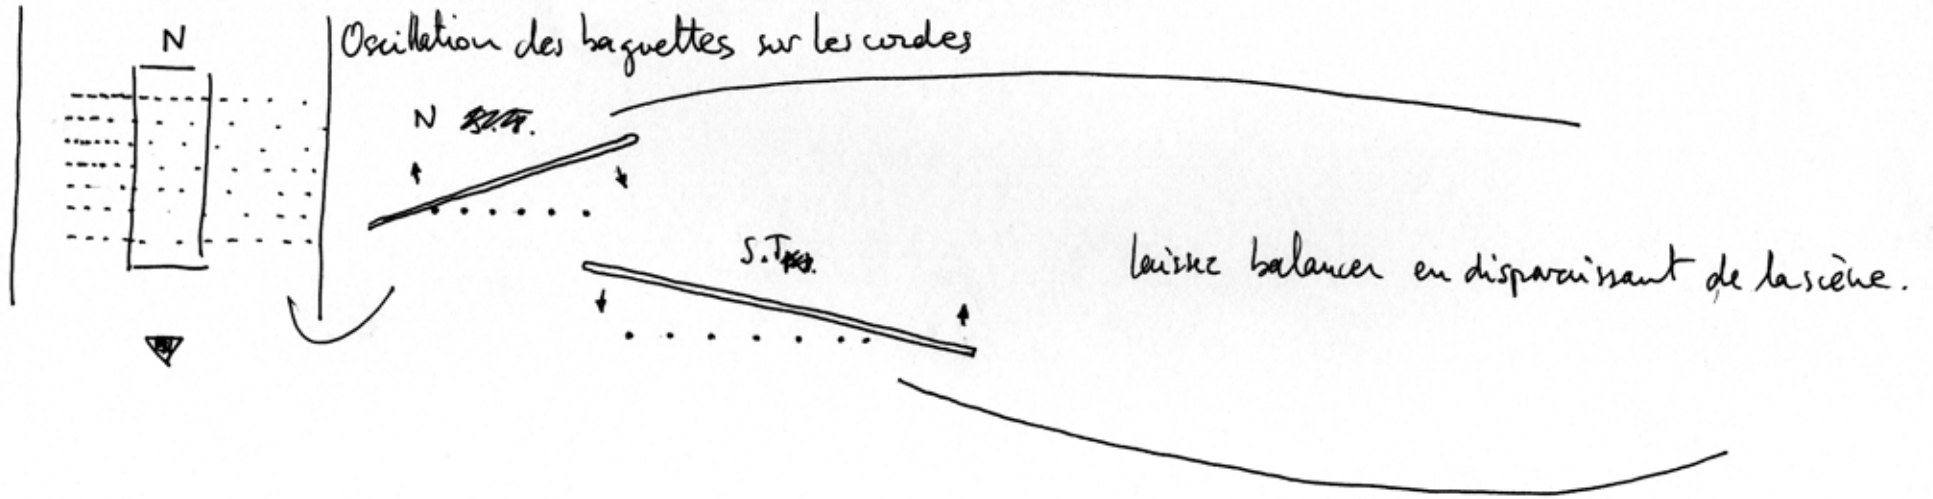 N
Oscillation des baguettes sur les cordes
N
S.T
laissez balancer en disparaissant de la scène.